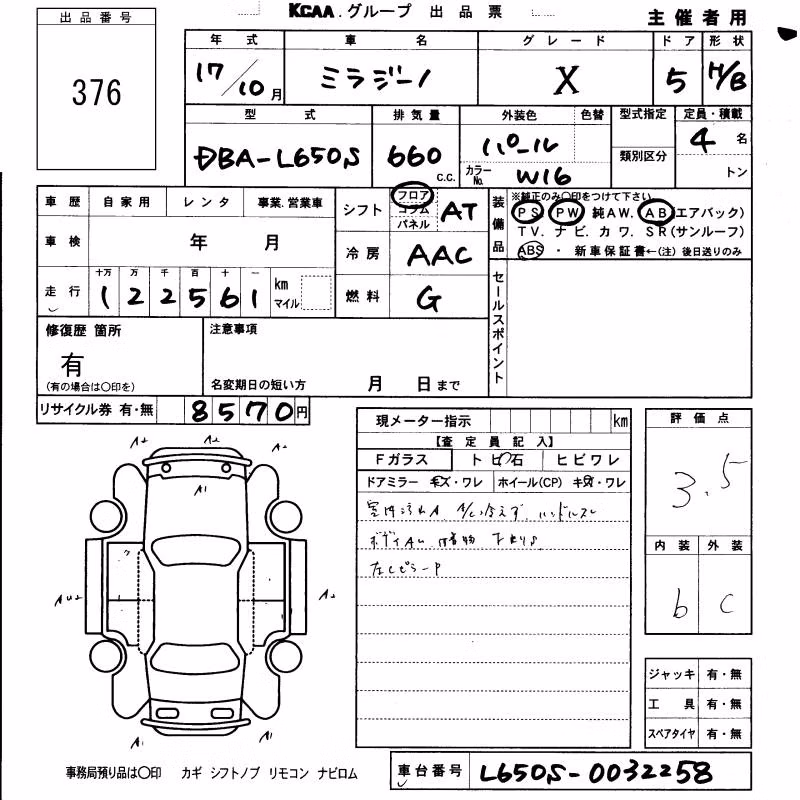 KCAA.グループ 出品票
主催者用
出品番号
376
年式 車名 グレード ドア 形状
17/10月 ミラジーノ X 5 H/B
型式 排気量 外装色 色替 型式指定 定員・積載
DBA-L650S 660 c.c. パール 類別区分 4名
カラーNo. W16 トン
車歴 自家用 レンタ 事業.営業車
シフト フロア コラム パネル AT
装備品 ※純正のみ〇印をつけて下さい
PS PW 純AW. AB(エアバック)
TV. ナビ. カワ. SR(サンルーフ)
ABS ・ 新車保証書←(注) 後日送りのみ
車検 年 月
冷房 AAC
走行 十万 万 千 百 十 一
122561 km マイル
燃料 G
セールスポイント
修復歴 箇所
有
(有の場合は〇印を)
注意事項
名変期日の短い方 月 日まで
リサイクル券 有・無 8570円
現メーター指示 km
【査定員記入】
Fガラス トビ石 ヒビワレ
ドアミラー キズ・ワレ ホイール(CP) キズ・ワレ
室内汚れ A/C冷えず ハンドルスレ
左CピラーP
評価点
3.5
内装 外装
b c
A2
A2
A2
A1
A2
A1
A1
ジャッキ 有・無
工具 有・無
スペアタイヤ 有・無
事務局預り品は〇印 カギ シフトノブ リモコン ナビロム
車台番号 L650S-0032258